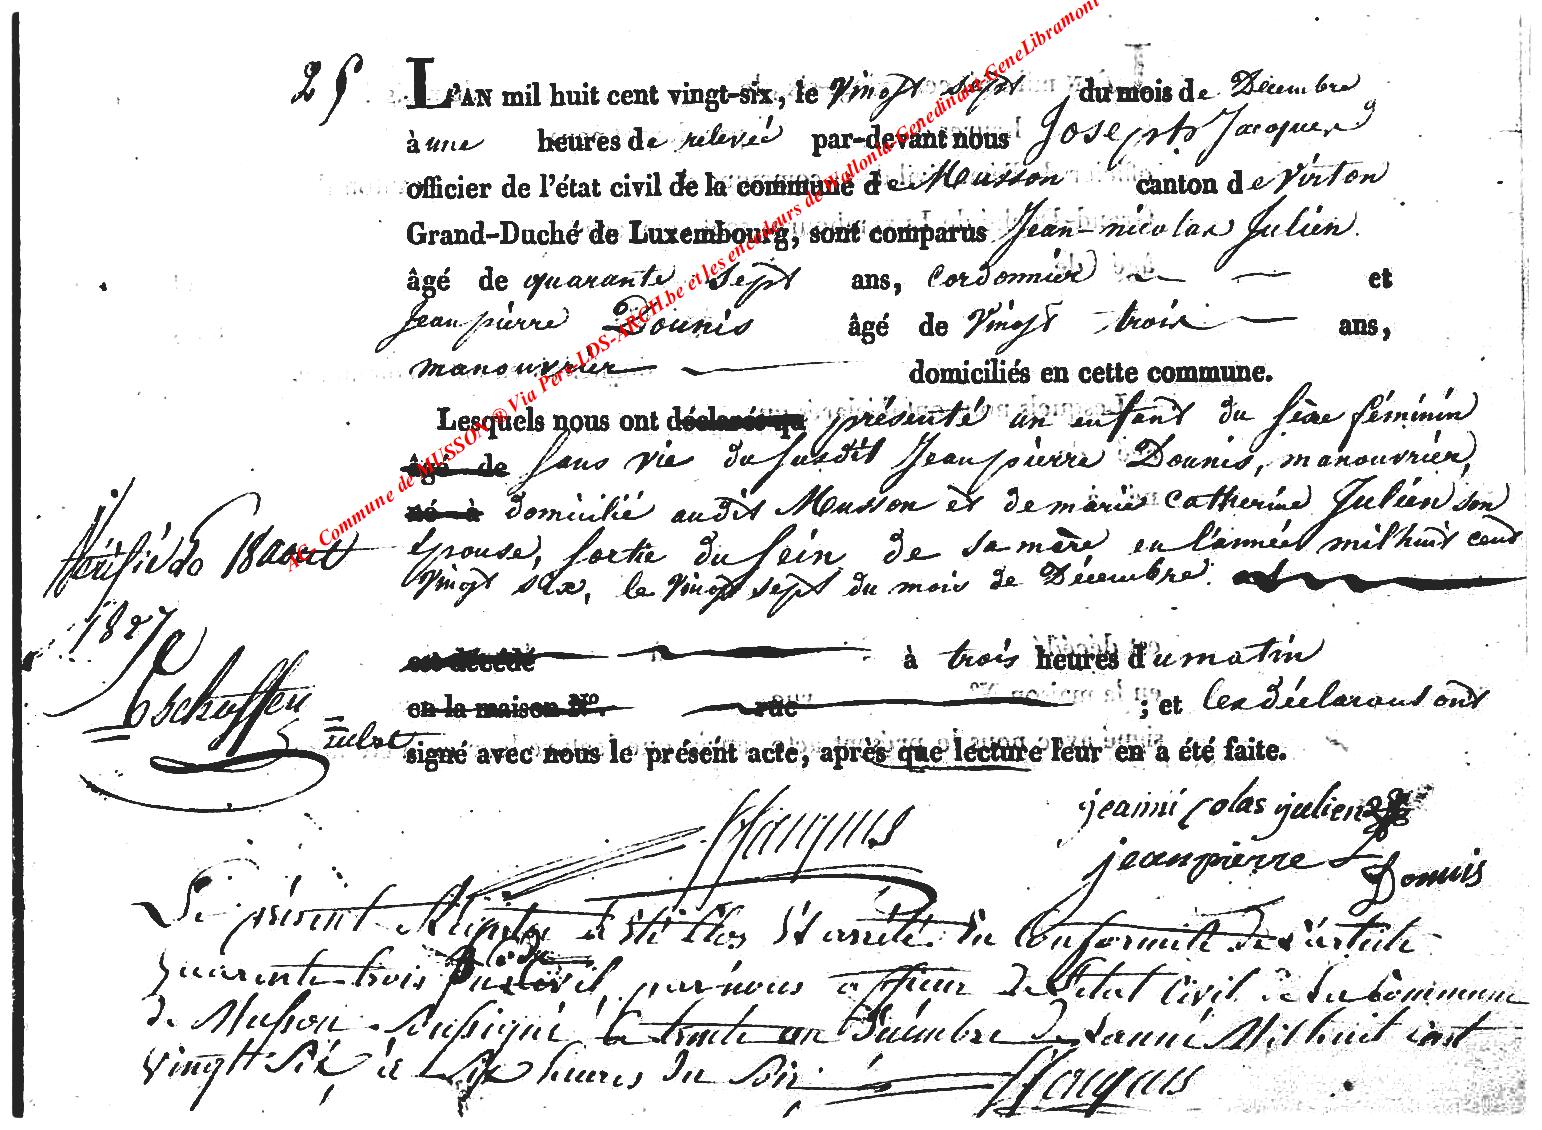 25 L'AN mil huit cent vingt-six, le vingt sept du mois de Décembre
à une heures de relevée par-devant nous Joseph Jacques
officier de l'état civil de la commune de Musson canton de Virton
Grand-Duché de Luxembourg, sont comparus Jean-nicolas Julien
âgé de quarante sept ans, cordonnier et
Jeanpierre Dounis âgé de vingt trois ans,
manouvrier domiciliés en cette commune.
Lesquels nous ont déclarés qu présenté un enfant du sexe féminin
âgé de sans vie du susdit Jeanpierre Dounis, manouvrier,
né à domicilié audit Musson et de marie catherine Julien son
épouse, sortie du sein de sa mère en l'année mil huit cent
vingt six, le vingt sept du mois de Décembre.
est décédé à trois heures du matin
en la maison Nº. rue ; et les déclarans ont
signé avec nous le présent acte, après que lecture leur en a été faite.
Vérifié le 18 aout
1827
JJacques
jeanni colas julien
jeanpierre Dounis
Le présent Registre a été clos et arrêté en conformité de l'article
quarante trois du civil, par nous officier de l'état civil de la commune
de Musson soussigné le trente un Décembre de l'année Mil huit cent
vingt Six à Six heures du Soir
JJacques
AG. Commune de MUSSON ® Via Pers LDS-ARCH.be et les encodeurs de Wallonia-Genedinant-GeneLibramont